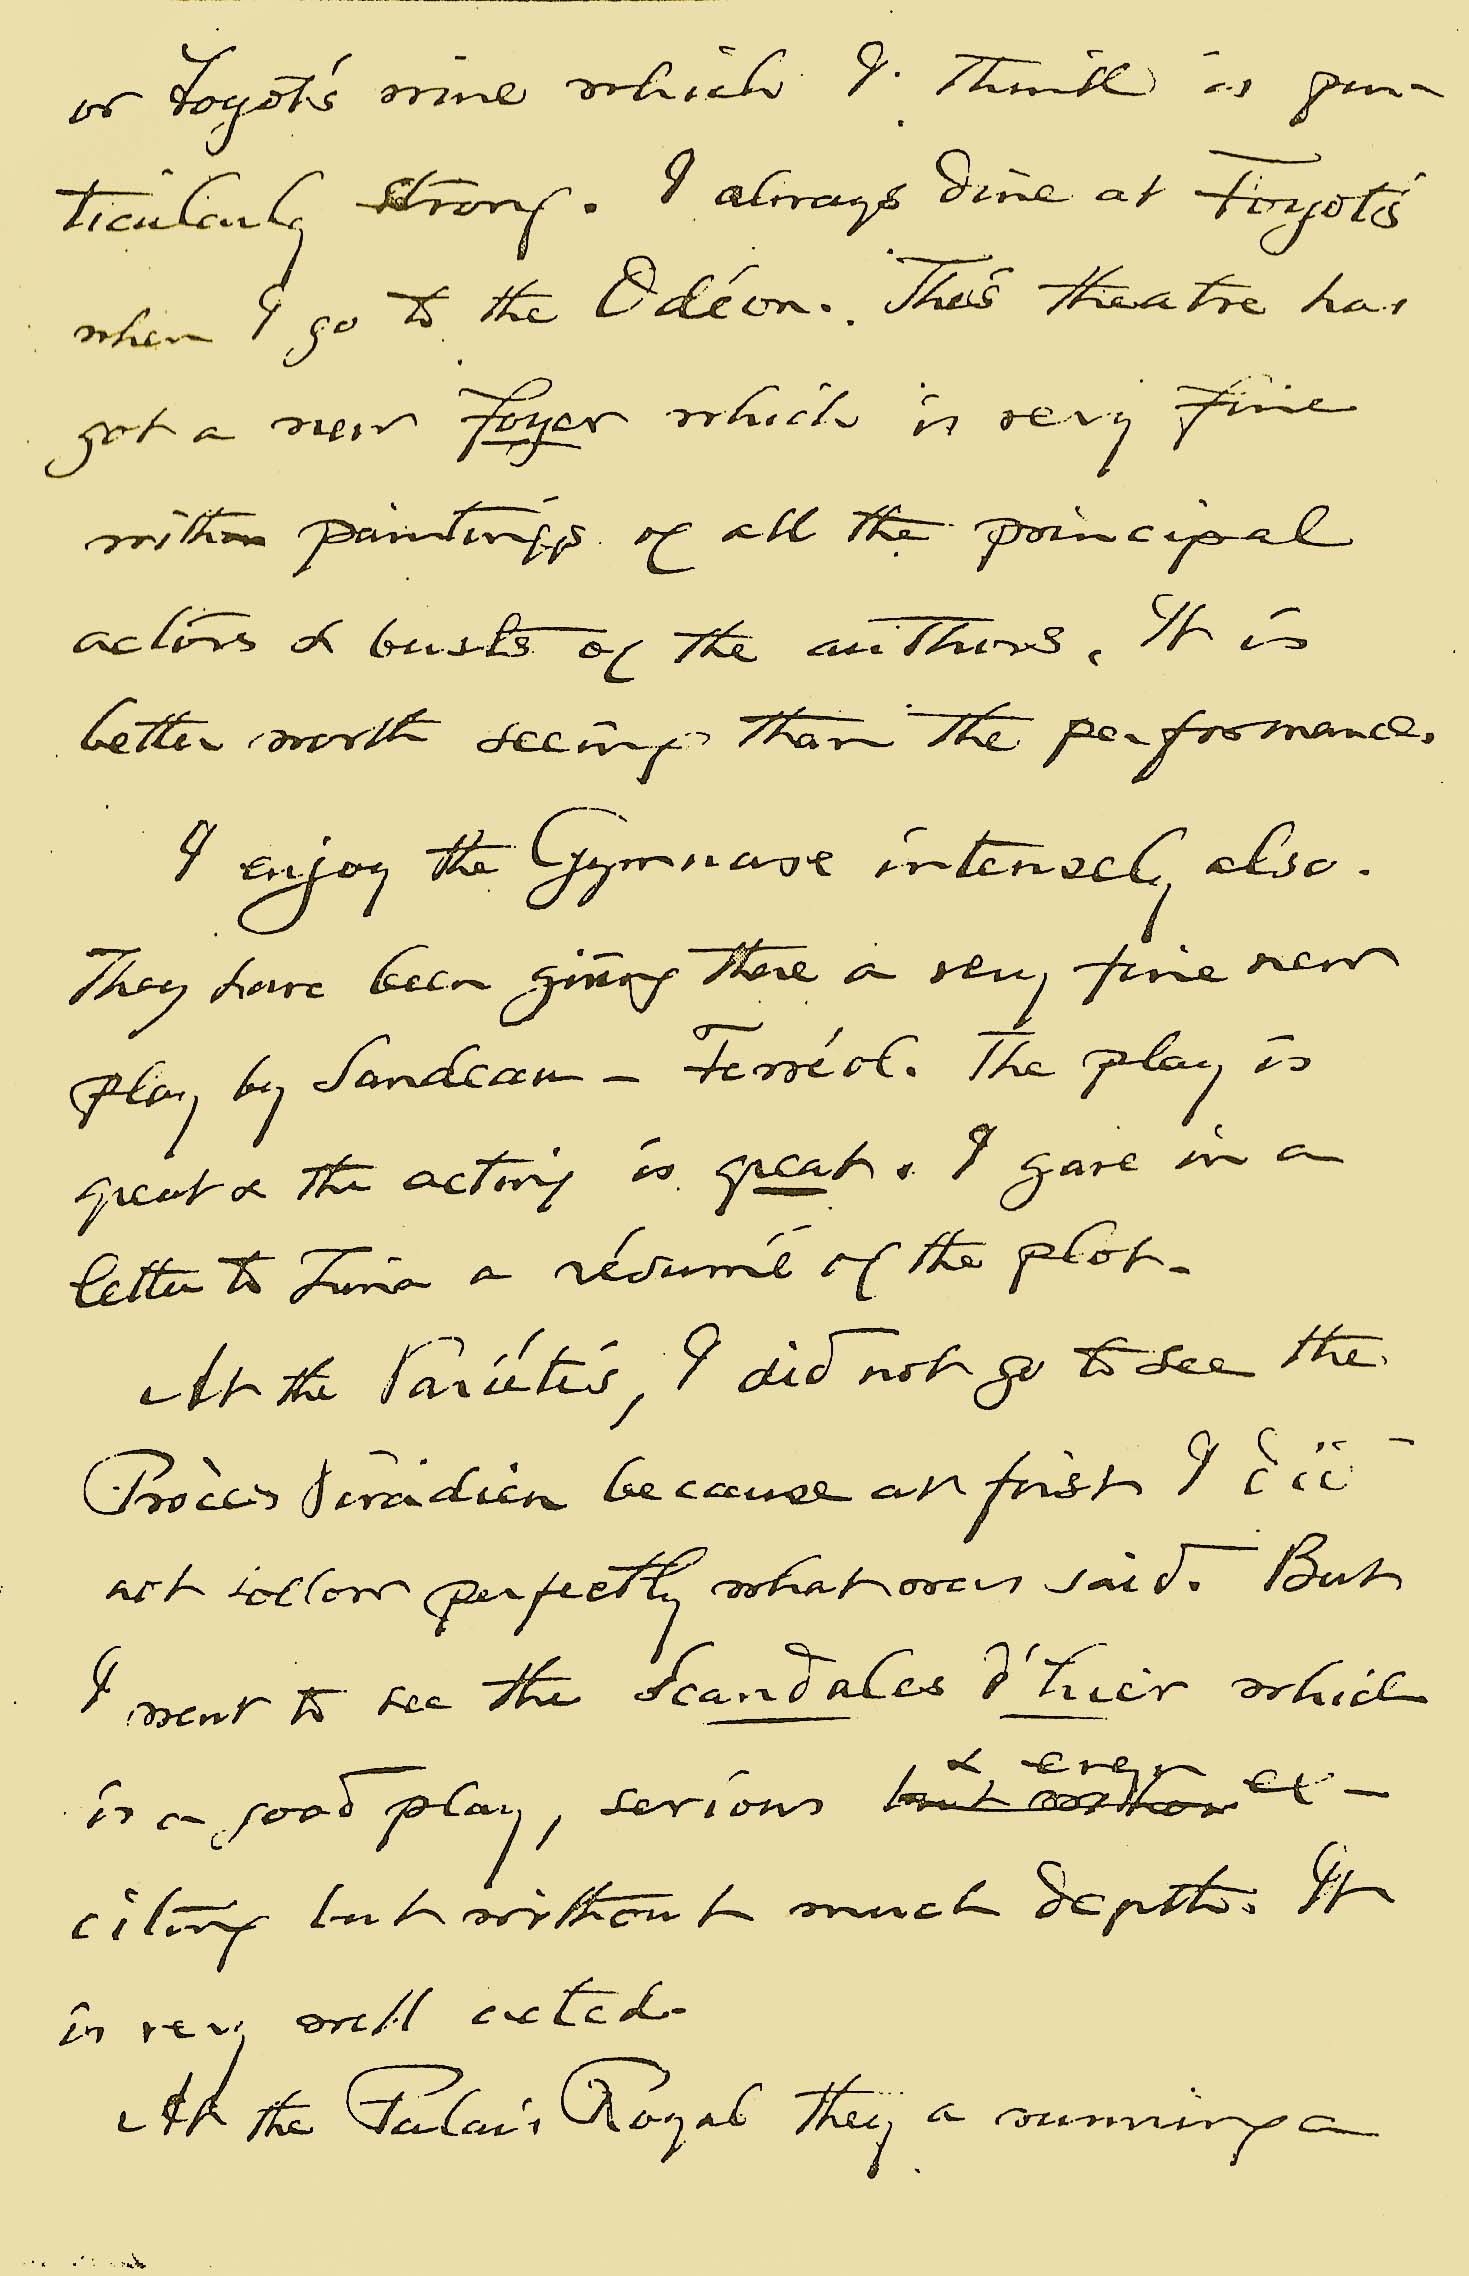 or Foyot's wine which I think is par-
ticularly strong. I always dine at Foyot's
when I go to the Odéon. This theatre has
got a new foyer which is very fine
with paintings of all the principal
actors & busts of the authors. It is
better worth seeing than the performance.
I enjoy the Gymnase intensely also.
They have been giving there a very fine new
play by Sandeau – Ferréol. The play is
great & the acting is great. I gave in a
letter to Nina a résumé of the plot.
At the Variétés, I did not go to see the
Procès Veradieu because at first I did
not follow perfectly what was said. But
I went to see the Scandales d'hier which
is a good play, serious but & even ex-
citing but without much depth. It
is very well acted.
At the Palais Royal they a running a